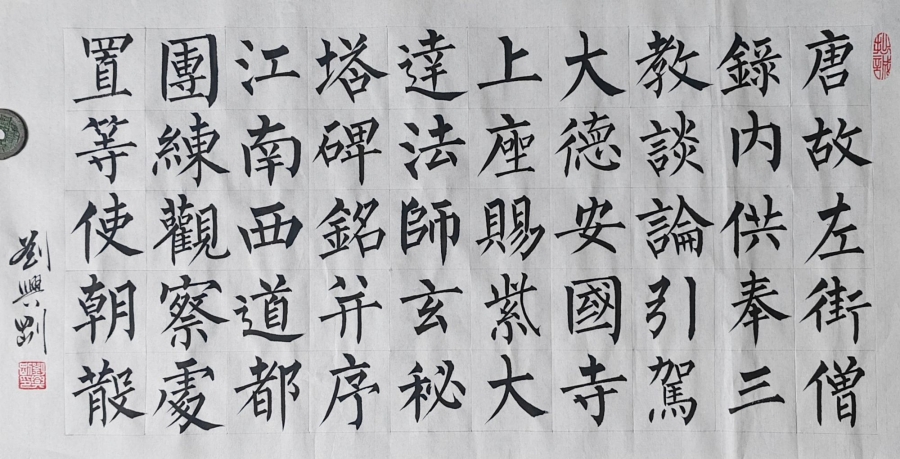 唐故左街僧
錄内供奉三
教談論引駕
大德安國寺
上座賜紫大
達法師玄秘
塔碑銘并序
江南西道都
團練觀察處
置等使朝散
劉興